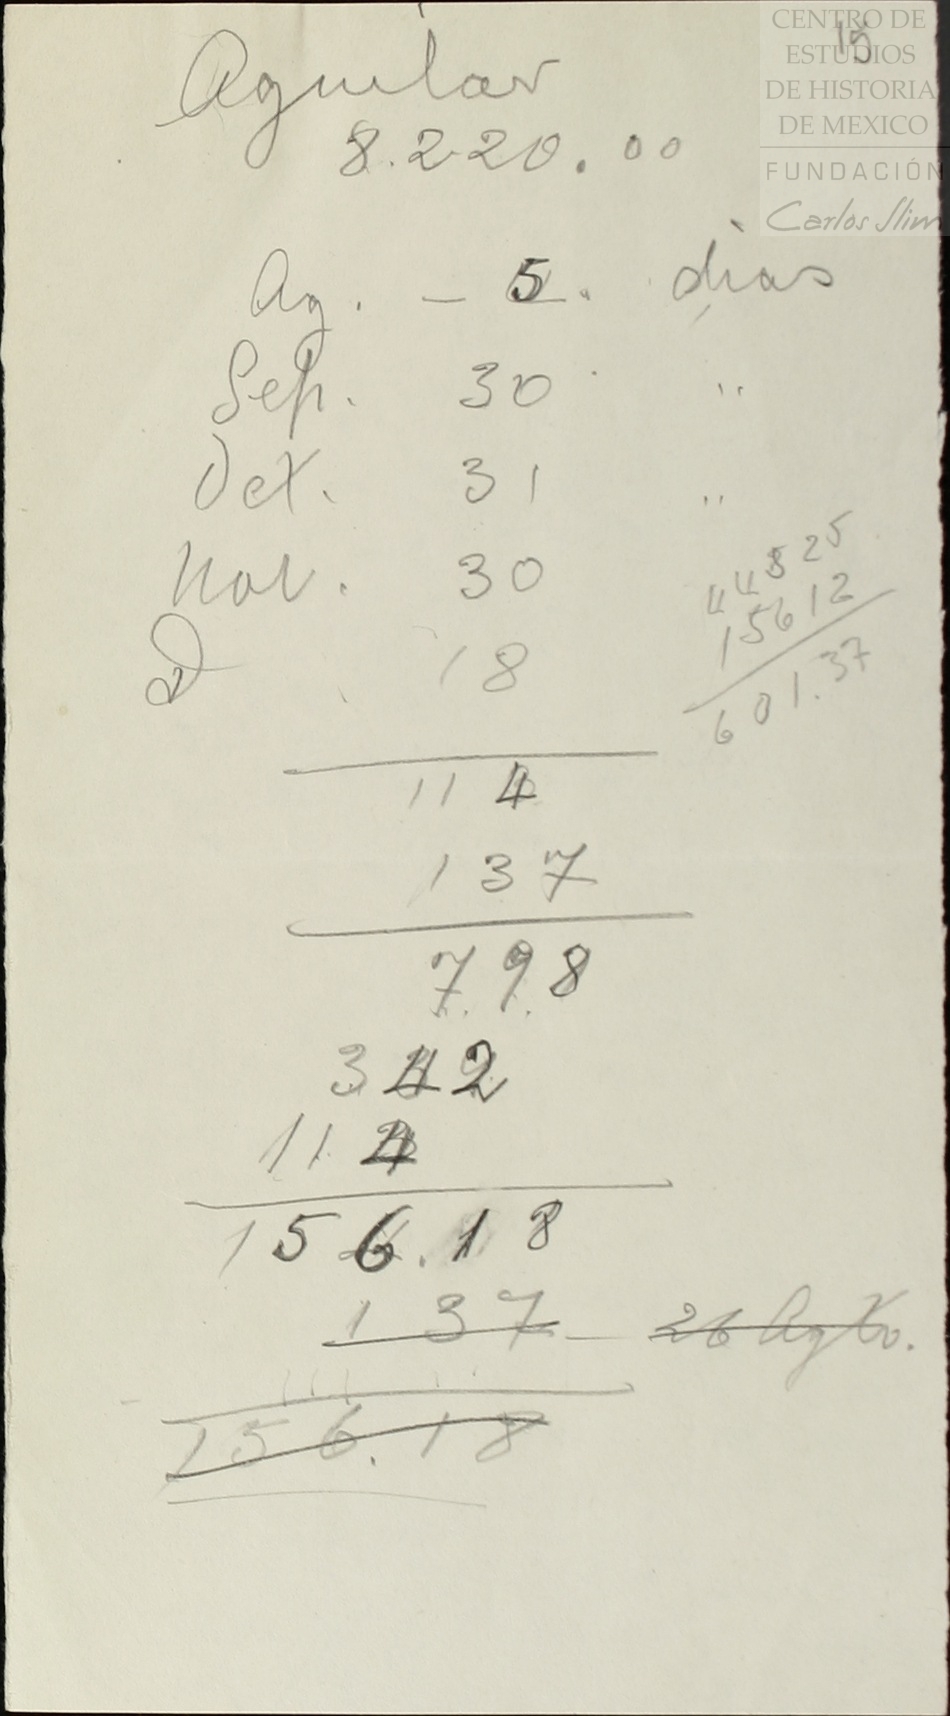 15
CENTRO DE
ESTUDIOS
DE HISTORIA
DE MEXICO
FUNDACIÓN
Carlos Slim
Aguilar
8.220.00
Ag. - 5. dias
Sep. 30 "
Oct. 31 "
Nov. 30
D 18
114
137
798
342
114
156.18
137 - 26 Agto.
156.18
44525
15612
601.37